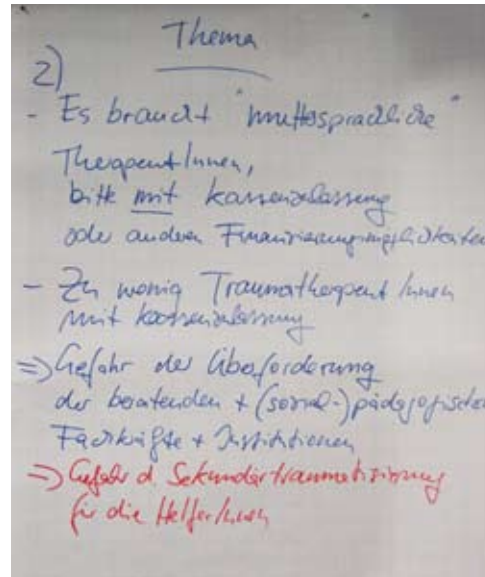 Thema
2)
- Es braucht "muttersprachliche"
TherapeutInnen,
bitte mit Kassenzulassung
oder anderen Finanzierungsmöglichkeiten
- Zu wenig TraumatherapeutInnen
mit Kassenzulassung
=> Gefahr der Überforderung
der beratenden + (sozial-)pädagogischen
Fachkräfte + Institutionen
=> Gefahr d. Sekundärtraumatisierung
für die HelferInnen